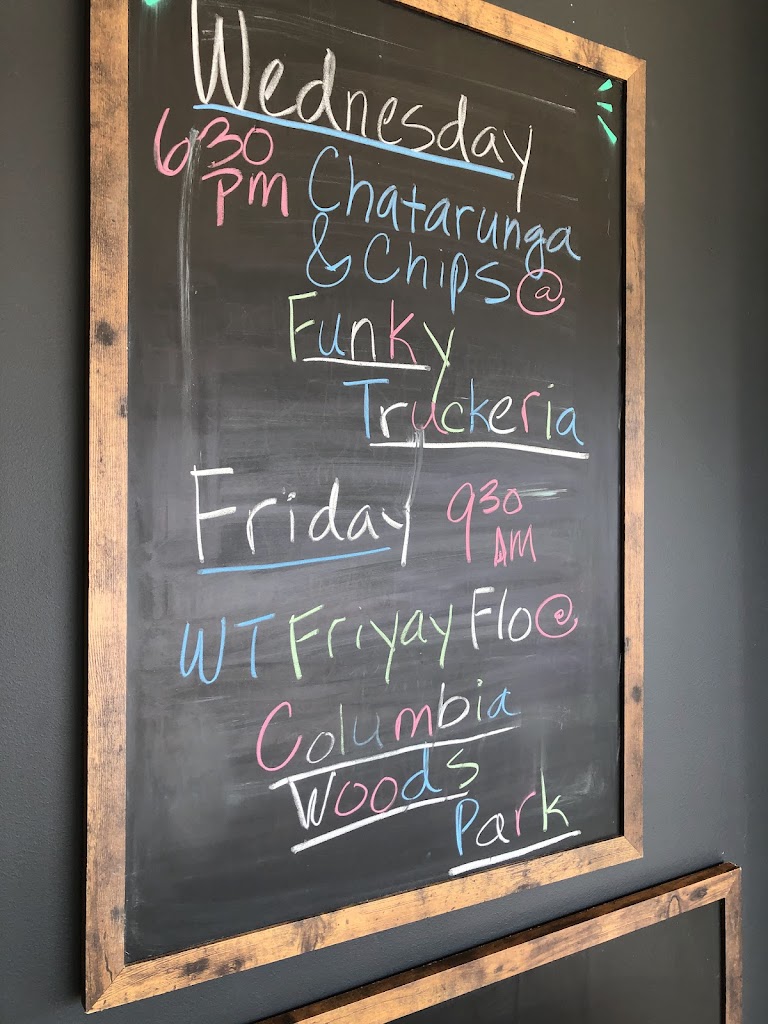 Wednesday
630
pm
Chatarunga
& Chips @
Funky
Truckeria
Friday
930
AM
WT Friyay Flo @
Columbia
Woods
Park